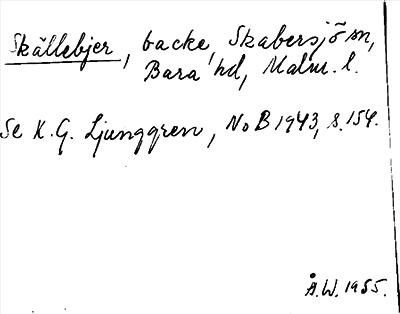 Skällebjer, backe, Skabersjö sn,
Bara hd, Malm. l.
Se K. G. Ljunggren, NoB 1943, s. 154.
Å.W. 1955.